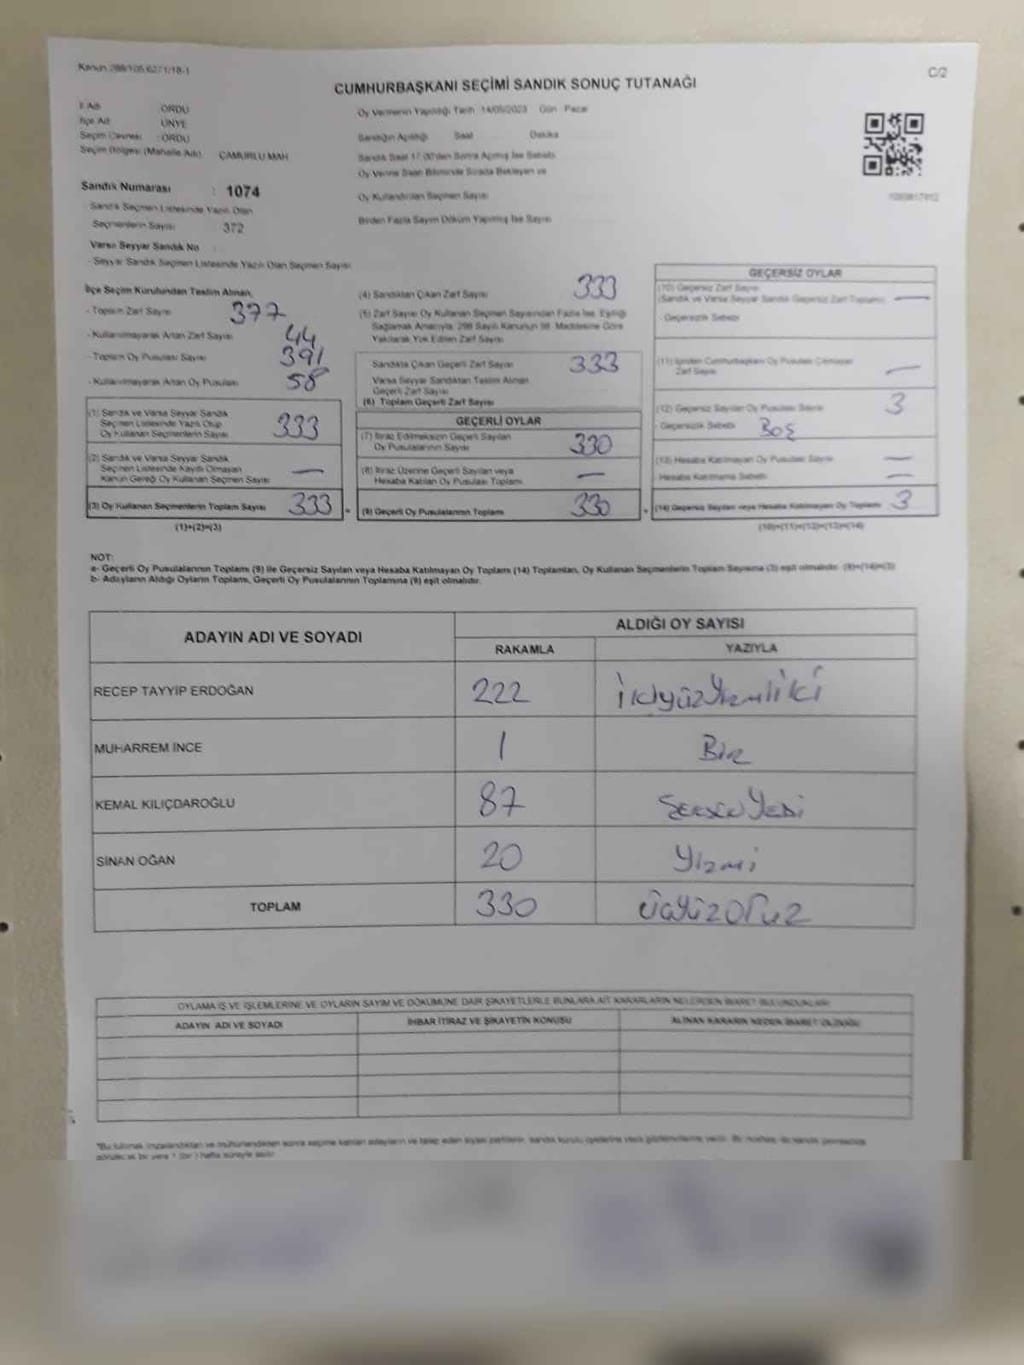 Kanun 298/105,6271/18-1
C/2
CUMHURBAŞKANI SEÇİMİ SANDIK SONUÇ TUTANAĞI
İl Adı ORDU
İlçe Adı ÜNYE
Seçim Çevresi : ORDU
Seçim Bölgesi (Mahalle Adı) ÇAMURLU MAH
Oy Vermenin Yapıldığı Tarih 14/05/2023 Gün Pazar
Sandığın Açıldığı Saat Dakika
Sandık Saat 17.00'den Sonra Açılmış İse Sebebi
Oy Verme Saati Bitiminde Sırada Bekleyen ve
Oy Kullandırılan Seçmen Sayısı
Birden Fazla Sayım Döküm Yapılmış İse Sayısı
Sandık Numarası : 1074
Sandık Seçmen Listesinde Yazılı Olan
Seçmenlerin Sayısı 372
Varsa Seyyar Sandık No
- Seyyar Sandık Seçmen Listesinde Yazılı Olan Seçmen Sayısı
İlçe Seçim Kurulundan Teslim Alınan,
- Toplam Zarf Sayısı 377
- Kullanılmayarak Artan Zarf Sayısı 44
- Toplam Oy Pusulası Sayısı 391
- Kullanılmayarak Artan Oy Pusulası 58
(1) Sandık ve Varsa Seyyar Sandık
Seçmen Listesinde Yazılı Olup
Oy Kullanan Seçmenlerin Sayısı 333
(2) Sandık ve Varsa Seyyar Sandık
Seçmen Listesinde Kayıtlı Olmayan
Kanun Gereği Oy Kullanan Seçmen Sayısı —
(3) Oy Kullanan Seçmenlerin Toplam Sayısı 333
(1)+(2)=(3)
(4) Sandıktan Çıkan Zarf Sayısı 333
(5) Zarf Sayısı Oy Kullanan Seçmen Sayısından Fazla İse, Eşitliği
Sağlamak Amacıyla, 298 Sayılı Kanunun 98. Maddesine Göre
Yakılarak Yok Edilen Zarf Sayısı
Sandıkta Çıkan Geçerli Zarf Sayısı 333
Varsa Seyyar Sandıktan Teslim Alınan
Geçerli Zarf Sayısı
(6) Toplam Geçerli Zarf Sayısı
GEÇERLİ OYLAR
(7) İtiraz Edilmeksizin Geçerli Sayılan
Oy Pusulalarının Sayısı 330
(8) İtiraz Üzerine Geçerli Sayılan veya
Hesaba Katılan Oy Pusulası Toplamı —
(9) Geçerli Oy Pusulalarının Toplamı 330
GEÇERSİZ OYLAR
(10) Geçersiz Zarf Sayısı
(Sandık ve Varsa Seyyar Sandık Geçersiz Zarf Toplamı) —
- Geçersizlik Sebebi
(11) İçinden Cumhurbaşkanı Oy Pusulası Çıkmayan
Zarf Sayısı —
(12) Geçersiz Sayılan Oy Pusulası Sayısı 3
- Geçersizlik Sebebi Boş
(13) Hesaba Katılmayan Oy Pusulası Sayısı —
Hesaba Katılmama Sebebi —
(14) Geçersiz Sayılan veya Hesaba Katılmayan Oy Toplamı 3
(10)+(11)+(12)+(13)=(14)
NOT:
a- Geçerli Oy Pusulalarının Toplamı (9) ile Geçersiz Sayılan veya Hesaba Katılmayan Oy Toplamı (14) Toplamları, Oy Kullanan Seçmenlerin Toplam Sayısına (3) eşit olmalıdır. (9)+(14)=(3)
b- Adayların Aldığı Oyların Toplamı, Geçerli Oy Pusulalarının Toplamına (9) eşit olmalıdır.
ADAYIN ADI VE SOYADI
ALDIĞI OY SAYISI
RAKAMLA YAZIYLA
RECEP TAYYİP ERDOĞAN 222 ikiyüzYirmiiki
MUHARREM İNCE 1 Bir
KEMAL KILIÇDAROĞLU 87 SEKSEN YEDİ
SİNAN OĞAN 20 Yirmi
TOPLAM 330 üçyüzotuz
OYLAMA İŞ VE İŞLEMLERİNE VE OYLARIN SAYIM VE DÖKÜMÜNE DAİR ŞİKAYETLERLE BUNLARA AİT KARARLARIN NELERDEN İBARET BULUNDUKLARI
ADAYIN ADI VE SOYADI İHBAR İTİRAZ VE ŞİKAYETİN KONUSU ALINAN KARARIN NEDEN İBARET OLDUĞU